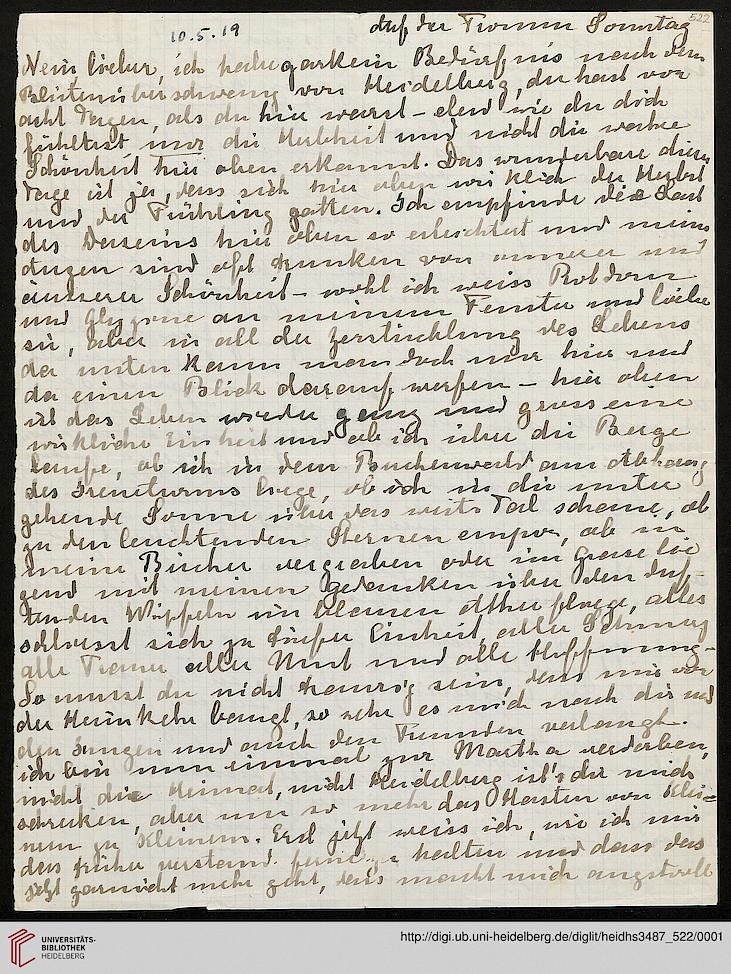 522
10.5.19 Auf der Tromm Sonntag
Nein lieber, ich habe garkein Bedürfnis nach dem
Blütenüberschwang von Heidelberg, du hast vor
acht Tagen, als du hier warst – elend wie du dich
fühltest nur die Herbheit und nicht die wahre
Schönheit hier oben erkannt. Das wunderbare dieser
Tage ist ja, dass sich hier oben wirklich der Herbst
und der Frühling gatten. Ich empfinde die Last
des Daseins hier oben so erleichtert und meine
Augen sind oft trunken von innerer und
äusserer Schönheit – wohl ich weiss Rotdorn
und Glyzine an meinem Fenster und liebe
sie, aber in all der Zerstücklung des Lebens
da unten kann man doch nur hier und
da einen Blick darauf werfen – hier oben
ist das Leben wieder ganz und gross eine
wirkliche Einheit und ob ich über die Berge
laufe, ob ich in dem Buchenwald am Abhang
des Ireneturms liege, ob ich in die unter
gehende Sonne über das weite Tal schaue, ob
zu den leuchtenden Sternen empor, ob in
meine Bücher vergraben oder im Grase lie
gend mit meinen Gedanken über den duf-
tenden Wipfeln im blauen Äther fliege, alles
schliesst sich zu tiefer Einheit, aller Schmerz
alle Trauer aller Mut und alle Hoffnung –
So musst du nicht traurig sein, dass mir vor
der Heimkehr bangt, so sehr es mich nach dir und
den Jungen und auch den Freunden verlangt.
ich bin nun einmal zur Martha verdorben,
nicht die Heimat, nicht Heidelberg ist's die mich
schrecken, aber um so mehr das Hasten von Klei=
nem zu Kleinem. Erst jetzt weiss ich, wie ich mir
das früher verstand zu halten und dass das
jetzt garnicht mehr geht, das macht mich angstvoll
UNIVERSITÄTS-
BIBLIOTHEK
HEIDELBERG
http://digi.ub.uni-heidelberg.de/diglit/heidhs3487_522/0001